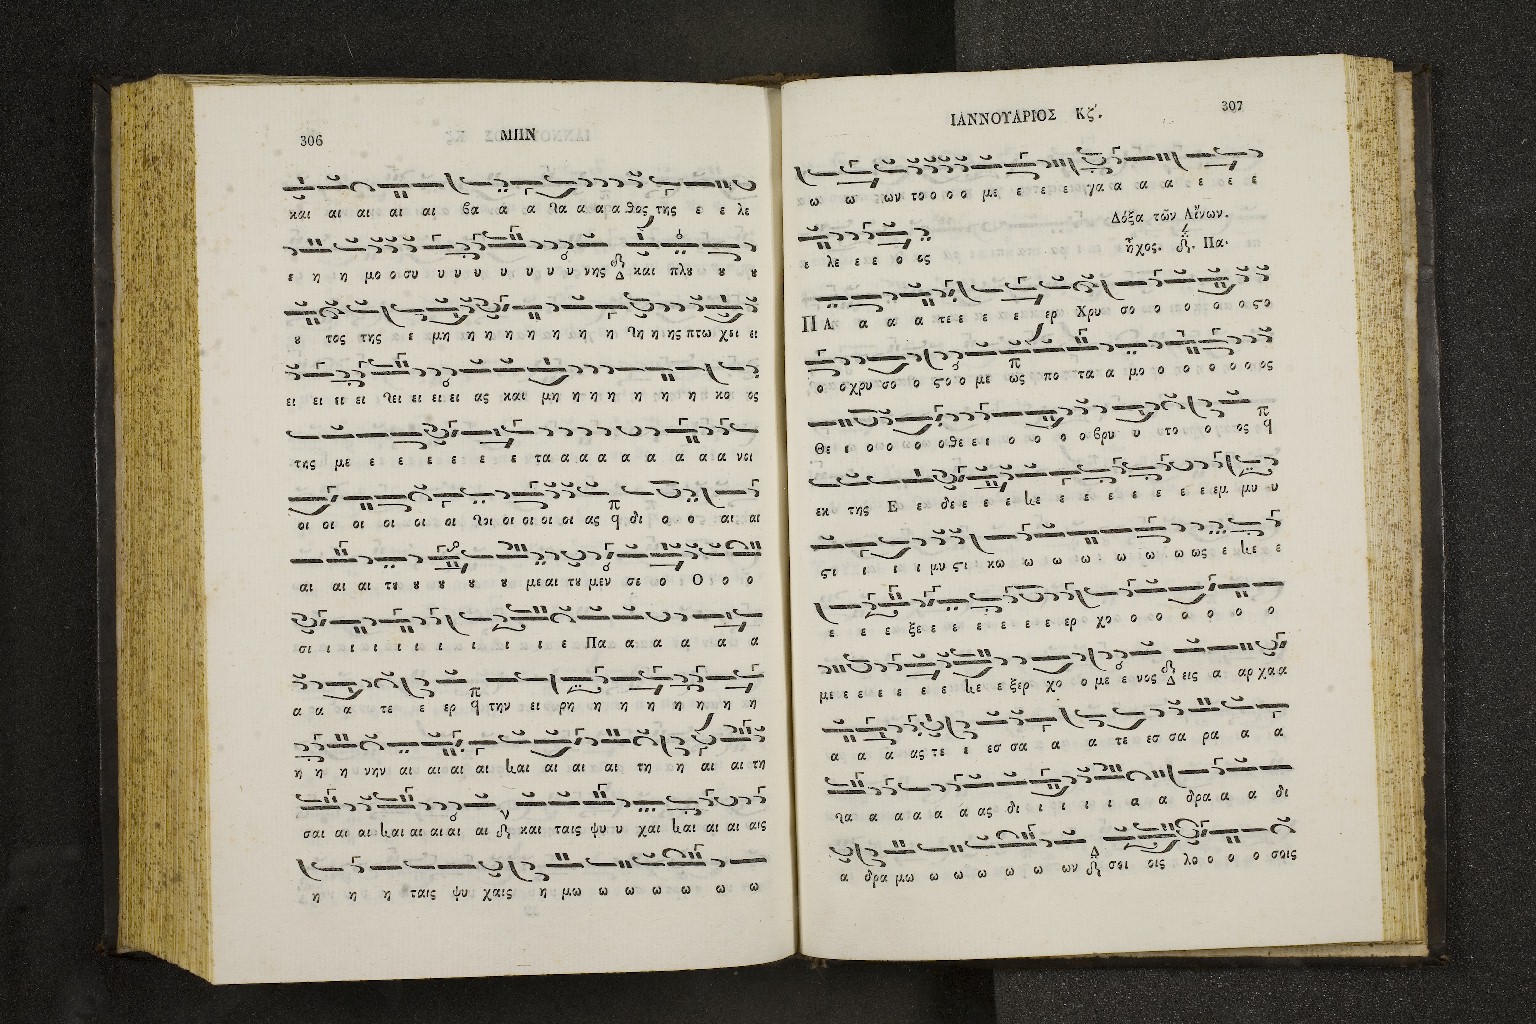 306
ΜΗΝ
και αι αι αι αι βα α α γα α α α θος της ε ε λε
ε η η μο ο συ υ υ υ υ υ υ υ υ νης Δ και πλȣ ȣ ȣ
ȣ τος της ε μη η η η η η η η γη η ης πτω χει ει
ει ει ει ει γει ει ει ει ας και μη η η η η η η η κο ος
της με ε ε ε ε ε ε τα α α α α α α α α νοι
οι οι οι οι οι οι γοι οι οι οι οι ας π q δι ο ο αι αι
αι αι αι τȣ ȣ ȣ ȣ ȣ με αι τȣ μεν σε ο Ο ο ο
σι ι ι ι ι ι ι ι ι ι ε Πα α α α α α
α α α τε ε ερ π q την ει ρη η η η η η η η
η η η νην αι αι αι αι και αι αι αι τη η αι αι τη
σαι αι αι και αι αι αι αι αι και ταις ψυ υ χαι και αι αι αις
η η η ταις ψυ χαις η μω ω ω ω ω ω ω
ΙΑΝΝΟΥΑΡΙΟΣ Κζ΄.
307
ω ω ων το ο ο ο με ε ε ε γα α α α ε ε ε
ε λε ε ε ο ος
Δόξα τῶν Αἴνων.
ἦχος. Πα.
ΠΑ α α α τε ε ε ε ερ Χρυ σο ο ο ο ο ϛο
ο ο χρυ σο ο ϛο ο με π ως πο τα α μο ο ο ο ο ο ο ος
Θε ι ο ο ο ο θε ει ο ο ο ο βρυ υ το ο ος π q
εκ της Ε ε δε ε ε ε κε ε ε ε ε ε ε ε εμ μυ υ
ϛι ι ι ι μυ ϛι κω ω ω ω ω ω ω ως ε κε ε
ε ε ε ξε ε ε ε ε ε ε ερ χο ο ο ο ο ο ο
με ε ε ε ε ε ε κε ε ξερ χο ο με ε νος Δ εις α αρ χα α
α α α ας τε ε εσ σα α α τε εσ σα ρα α α
γα α α α α α ας δι ι ι ι ι α α δρα α α δι
α δρα μω ω ω ω ω ω ων Δ σοι οις λο ο ο ο σοις